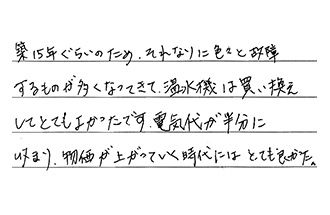 築15年ぐらいのため、それなりに色々と故障
するものが多くなってきて、温水機は買い換え
してとてもよかったです。電気代が半分に
収まり、物価が上がっていく時代にはとても良かった。